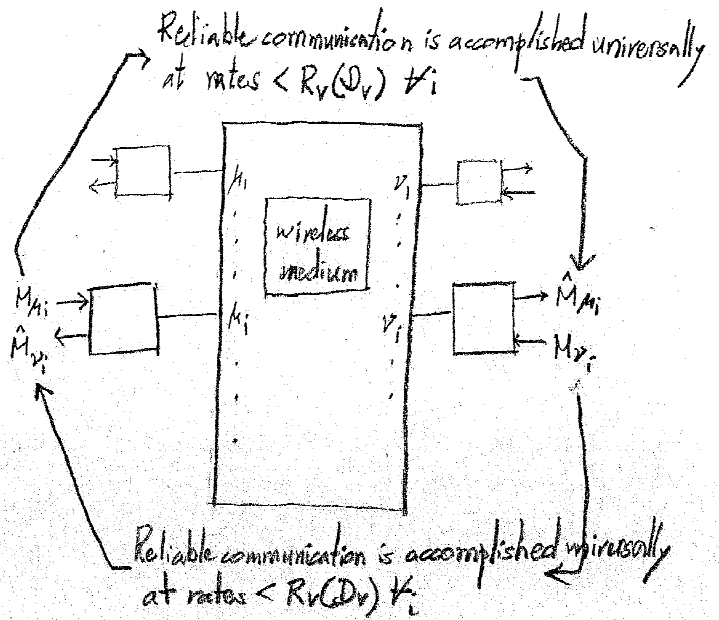 Reliable communication is accomplished universally
at rates < Rν(Dν) ∀i
μ1
ν1
wireless
medium
Mμi
M̂νi
μi
νi
M̂μi
Mνi
Reliable communication is accomplished universally
at rates < Rν(Dν) ∀i